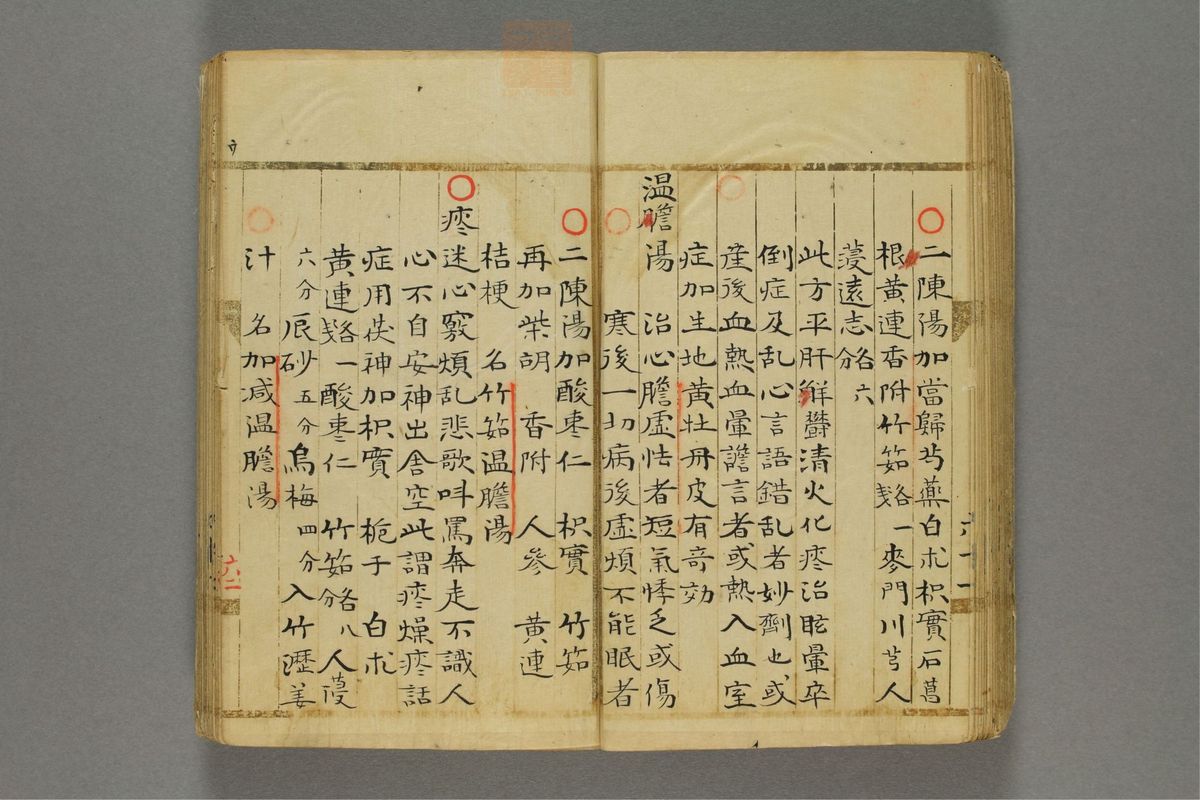 二陳湯加當歸芍薬白朮枳實石菖
根黄連香附竹筎各一戔麥門川芎人
蔆遠志各六分
此方平肝解欝清火化痰治眩暈卒
倒症及乱心言語錯乱者妙劑也或
産後血熱血暈譫言者或熱入血室
症加生地黄牡丹皮有奇効
温膽湯 治心膽虚怯者短氣悸乏或傷
寒後一切病後虚煩不能眠者
二陳湯加酸枣仁 枳實 竹筎
再加柴胡 香附 人參 黄連
桔梗 名竹筎温膽湯
痰迷心竅煩乱悲歌呌罵奔走不識人
心不自安神出舍空此謂痰燥痰話
症用茯神加枳實 梔子 白朮
黄連各一戔酸枣仁 竹筎各八分人蔆
六分辰砂五分烏梅四分入竹瀝姜
汁 名加减温膽湯
六十一
六二